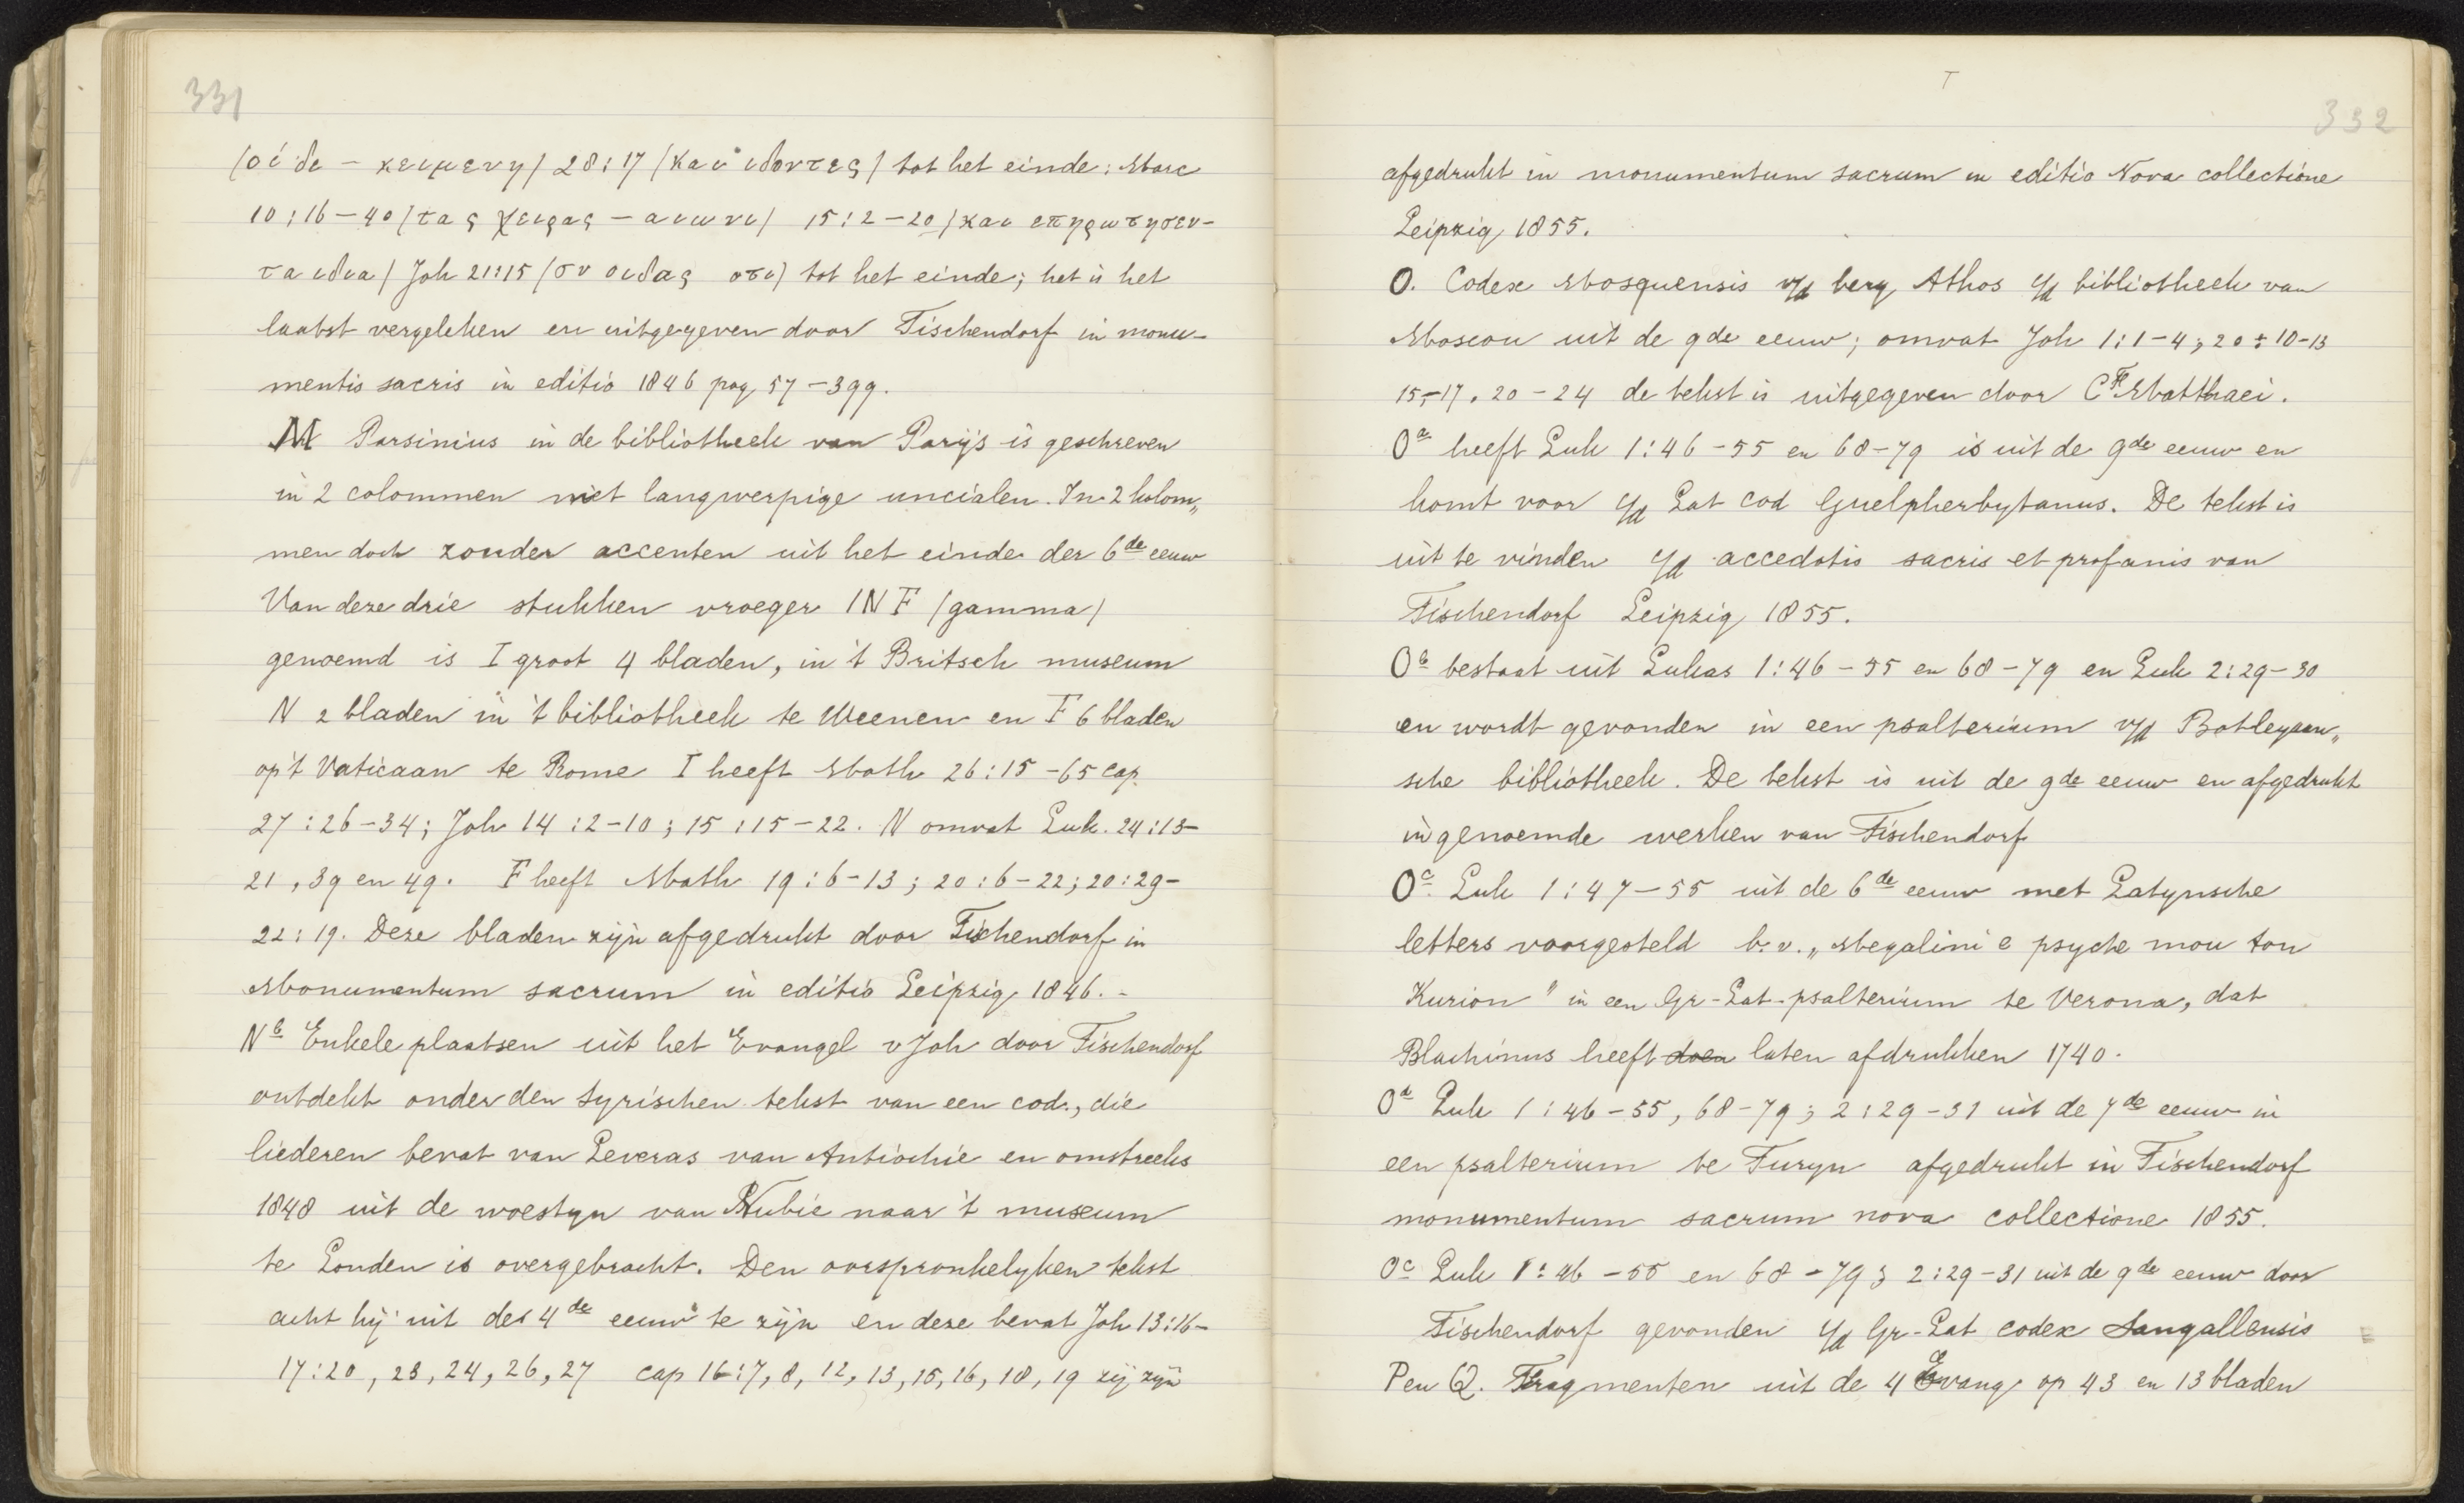 331
(οἱ δε – κειμενη) 28:17 (και ιδοντες) tot het einde: Marc
10:16–40 (τας χειρας – αιωνι) 15:2–20 (και επηρωτησεν-
τα ιδια) Joh 21:15 (συ οιδας οτι) tot het einde; het is het
laatst vergeleken en uitgegeven door Tischendorf in monu-
mentis sacris in editio 1846 pag 57–399.
M Parsinius in de bibliotheek van Parijs is geschreven
in 2 colommen met langwerpige uncialen. In 2 kolom„
men doch zonder accenten uit het einde der 6de eeuw
Van deze drie stukken vroeger INF (gamma)
genoemd is I groot 4 bladen, in 't Britsch museum
N 2 bladen in 't bibliotheek te Weenen en F 6 bladen
op 't Vaticaan te Rome I heeft Math 26:15–65 cap.
27:26–34; Joh 14:2–10; 15:15–22. N omvat Luk. 24:13–
21, 39 en 49. F heeft Math 19:6–13; 20:6–22; 20:29–
22:19. Deze bladen zijn afgedrukt door Tischendorf in
Monumentum sacrum in editio Leipzig 1846. -
Nb Enkele plaatsen uit het Evangel v Joh door Tischendorf
ontdekt onder den Syrischen tekst van een cod., die
liederen bevat van Severas van Antiochie en omstreeks
1848 uit de woestyn van Nubie naar 't museum
te Londen is overgebracht. Den oorspronkelyken tekst
acht hij uit der 4de eeuw te zijn en deze bevat Joh 13:16–
17:20, 23, 24, 26, 27 cap 16:7, 8, 12, 13, 15, 16, 18, 19 zij zijn
T
332
afgedrukt in monumentum sacrum in editio Nova collectione
Leipzig 1855.
O. Codex Mosquensis v/d berg Athos i/d bibliotheek van
Moscou uit de 9de eeuw; omvat Joh 1:1–4; 20:10–13
15–17, 20–24 de tekst is uitgegeven door C F Matthaei.
Oa heeft Luk 1:46–55 en 68–79 is uit de 9de eeuw en
komt voor i/d Lat cod Guelpherbytanus. De tekst is
uit te vinden i/d accedotis sacris et profanis van
Tischendorf Leipzig 1855.
Ob bestaat uit Lukas 1:46–55 en 68–79 en Luk 2:29–30
en wordt gevonden in een psalterium v/d Botleyaan„
sche bibliotheek. De tekst is uit de 9de eeuw en afgedrukt
in genoemde werken van Tischendorf
Oc Luk 1:47–55 uit de 6de eeuw met Latynsche
letters voorgesteld b.v. „Megalini e psyche mou ton
Kurion" in een Gr-Lat-psalterium te Verona, dat
Blachinus heeft doen laten afdrukken 1740.
Od Luk 1:46–55, 68–79; 2:29–31 uit de 7de eeuw in
een psalterium te Turyn afgedrukt in Tischendorf
monumentum sacrum nova collectione 1855.
Oe Luk 1:46–55 en 68–79; 2:29–31 uit de 9de eeuw door
Tischendorf gevonden i/d Gr-Lat codex Sangallensis
P en Q. Fragmenten uit de 4 Evang op 43 en 13 bladen